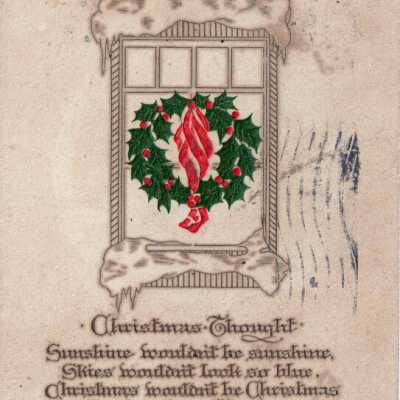 · Christmas · Thought ·
Sunshine wouldn't be sunshine,
Skies wouldn't look so blue,
Christmas wouldn't be Christmas